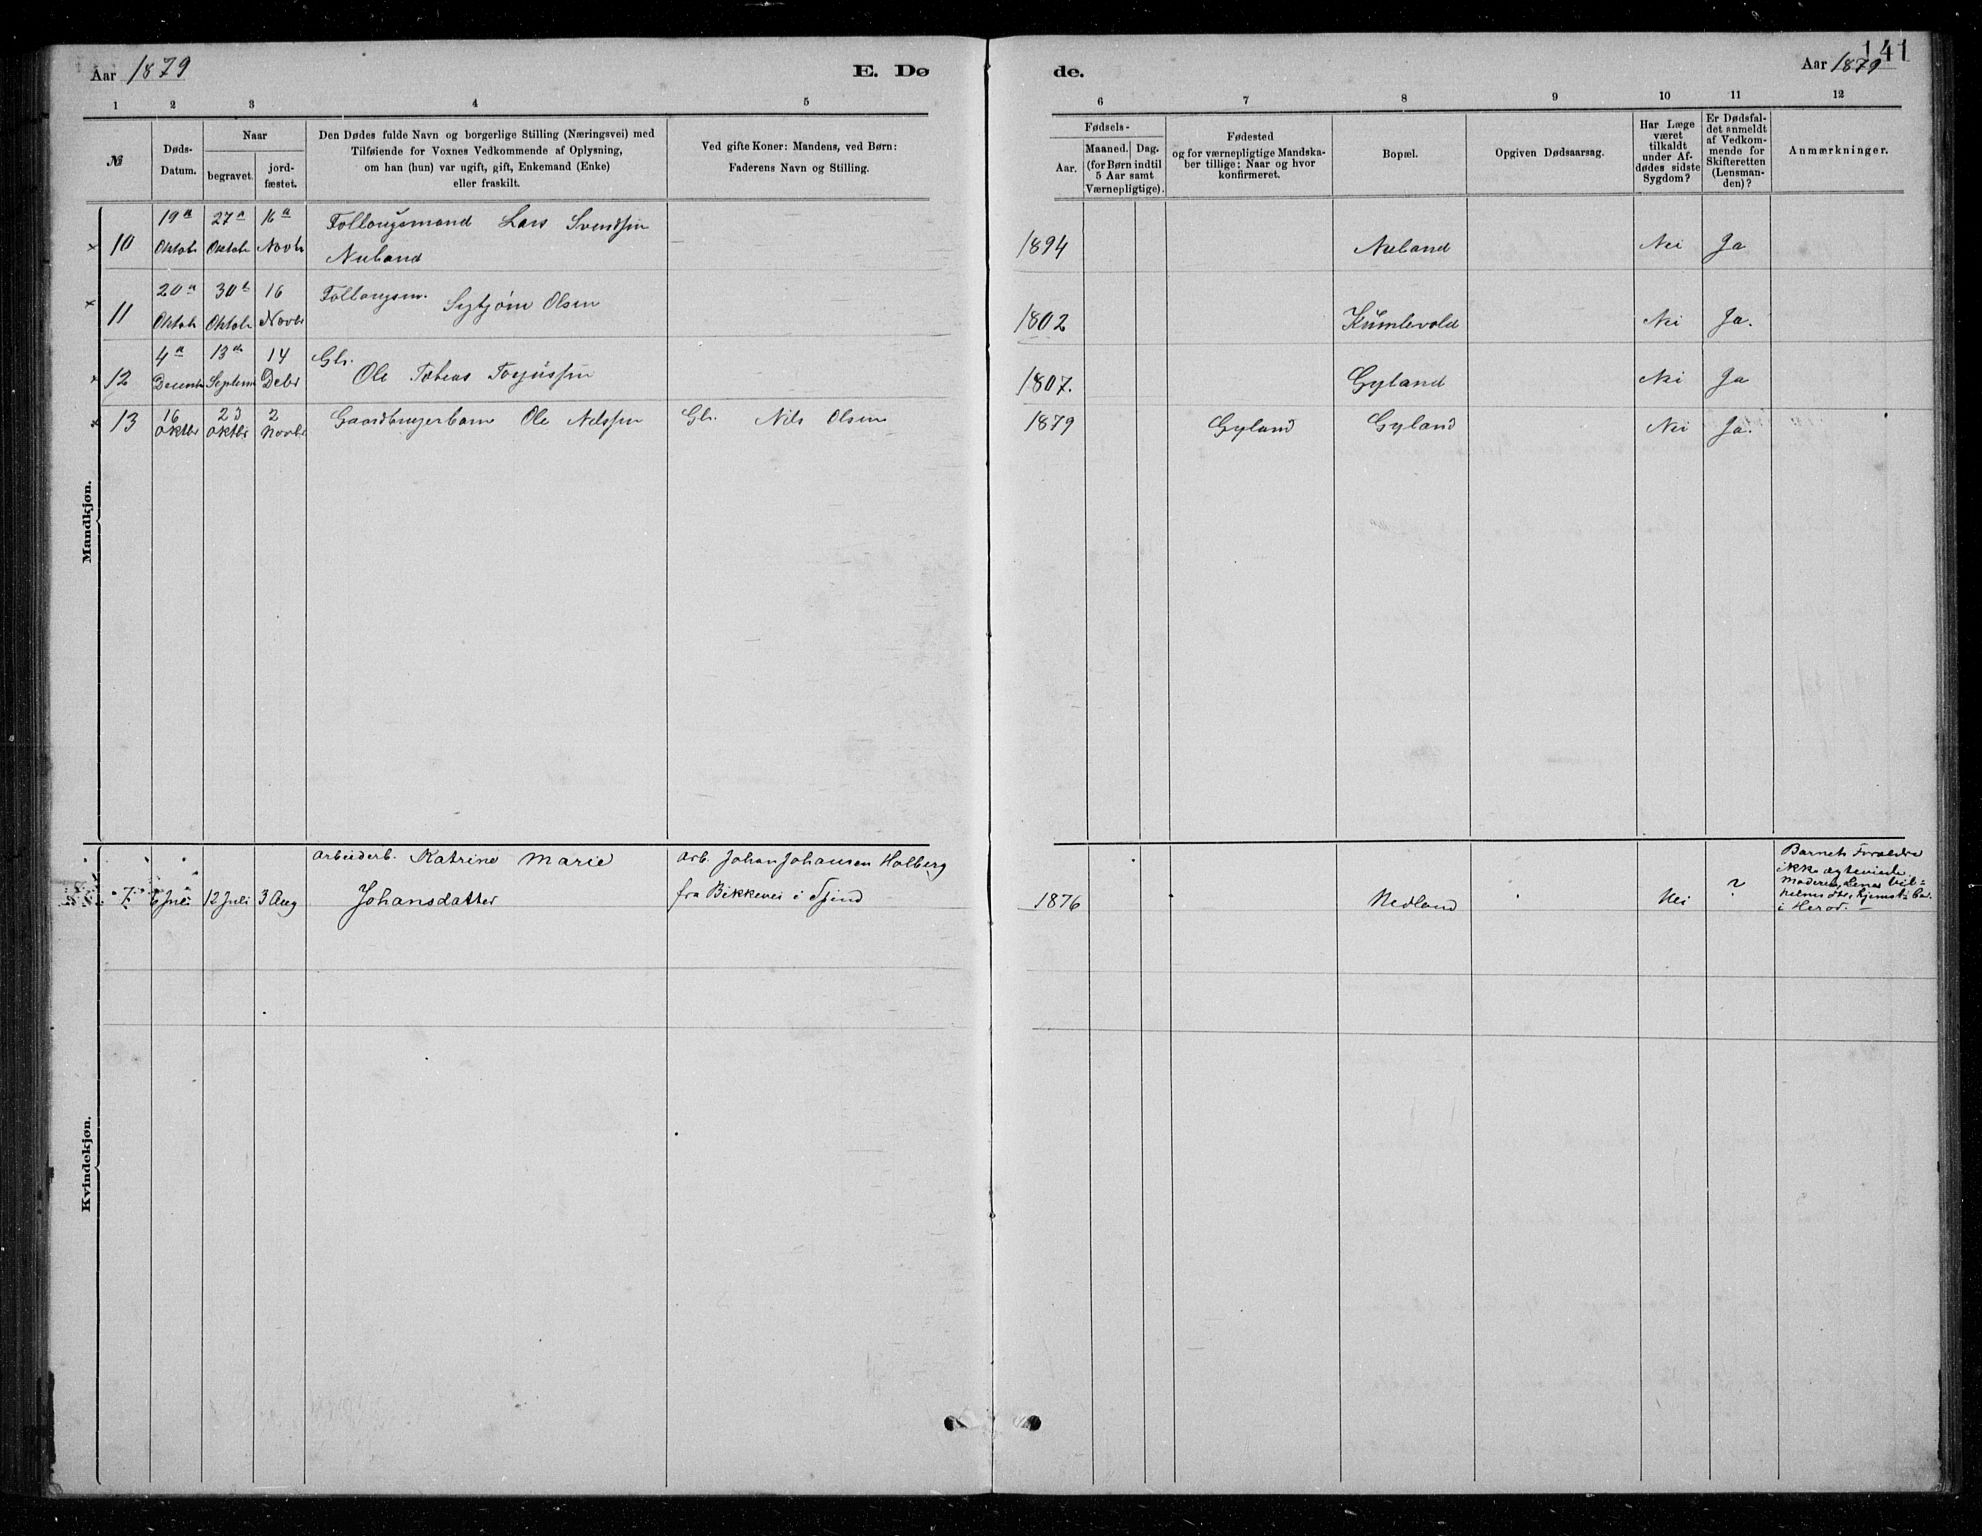 Aar 1879
E. Dø
de.
Aar 1879
141
1 2 3 4 5 6 7 8 9 10 11 12
№
Døds-
Datum.
Naar
begravet.
jord-
fæstet.
Den Dødes fulde Navn og borgerlige Stilling (Næringsvei) med
Tilføiende for Voxnes Vedkommende af Oplysning,
om han (hun) var ugift, gift, Enkemand (Enke)
eller fraskilt.
Ved gifte Koner: Mandens, ved Børn:
Faderens Navn og Stilling.
Fødsels-
Aar.
Maaned. Dag.
(for Børn indtil
5 Aar samt
Værnepligtige).
Fødested
og for værnepligtige Mandska-
ber tillige: Naar og hvor
konfirmeret.
Bopæl.
Opgiven Dødsaarsag.
Har Læge
været
tilkaldt
under Af-
dødes sidste
Sygdom?
Er Dødsfal-
det anmeldt
af Vedkom-
mende for
Skifteretten
(Lensman-
den)?
Anmærkninger.
Mandkjøn.
10 19de Oktob 27de Oktob 16de Novb Follougsmand Lars Svendsen
Nuland 1894 Nuland Nei Ja
11 20de Oktob 30te Oktob 16 Novbr Follougsm. Olsen 1802 Kumlevold Nei Ja.
12 4de 13de Septem 14 Debr Gbr.
Ole Tobias 1807. Gyland Nei Ja
13 16 oktbr 23 oktbr 2 Novbr Gaardbrugerbarn Ole Nilssen Gbr. Nils Olsen 1879 Gyland Gyland Nei Ja.
Kvindekjøn.
7 6 Juli 12 Juli 3 Aug arbeiderb. Katrine Marie
Johansdatter
arb. Johan Johansen Holberg
fra Bikkevei i Spind
1876 Nedland Nei ?
Barnets Forældre
ikke ægteviede.
Moderen Lenes Vil-
helmsdtr,
i Herod. —